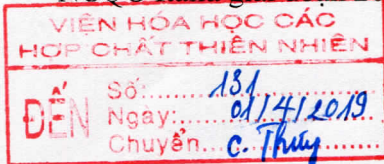 VIỆN HÓA HỌC CÁC
HỢP CHẤT THIÊN NHIÊN
ĐẾN
Số: 131
Ngày: 01/4/2019
Chuyển: C. Thủy